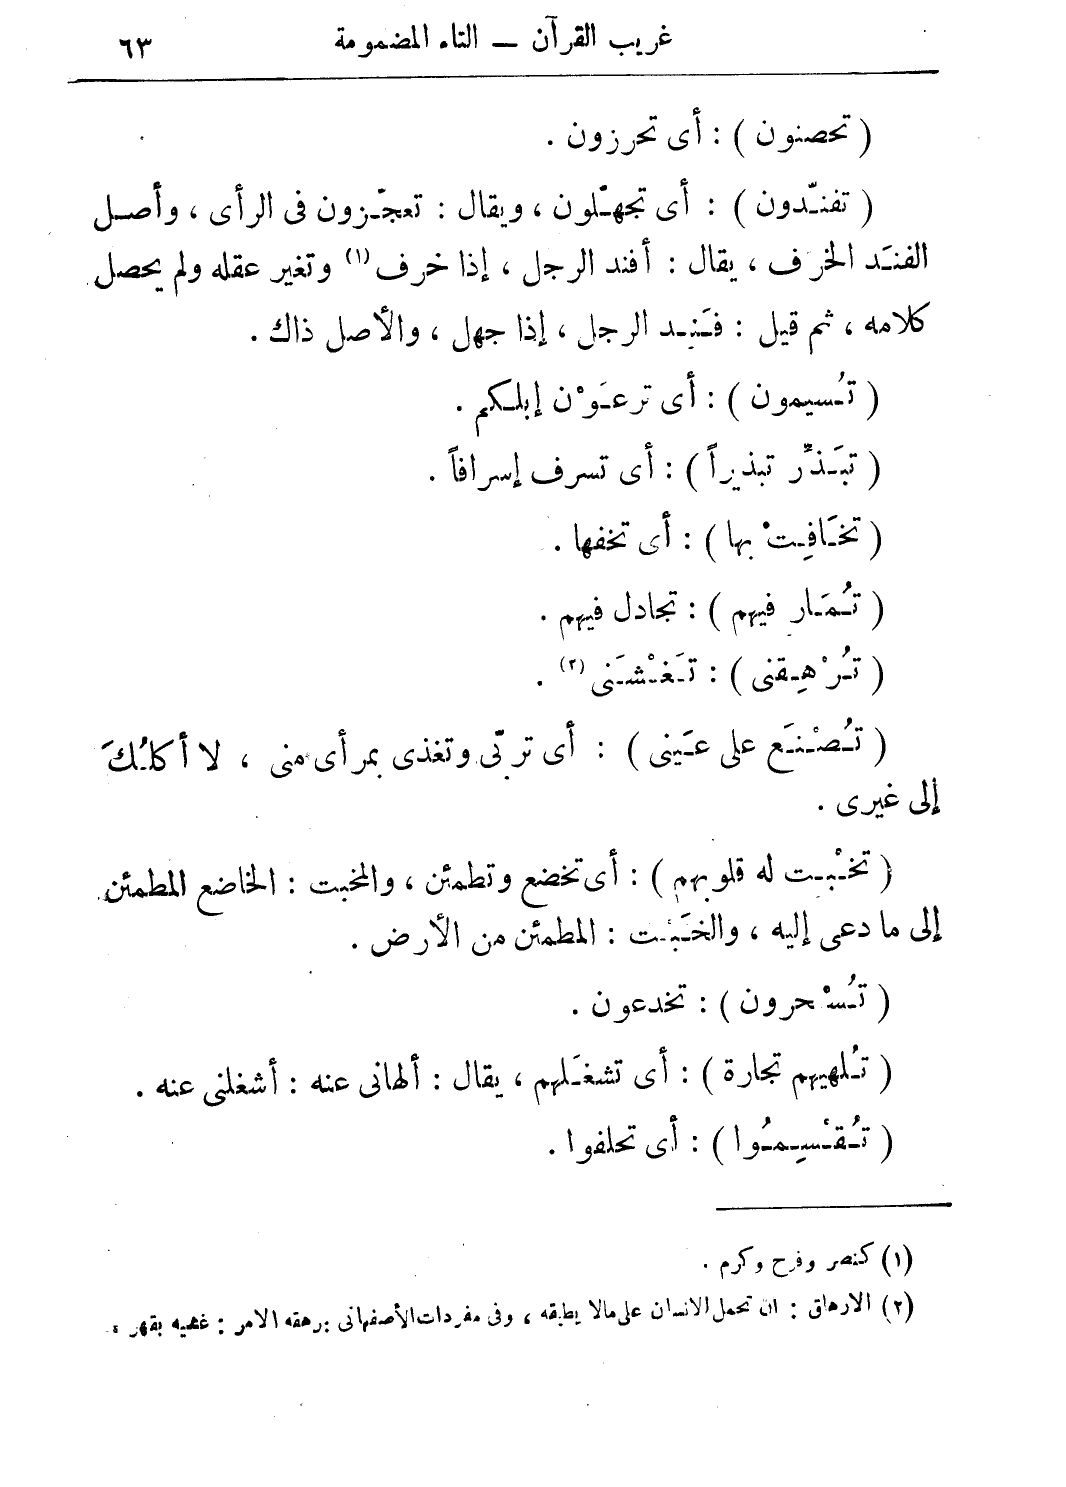 غريب القرآن — التاء المضمومة ٦٣
( تحصنون ) : أى تحرزون .
( تفنّدون ) : أى تجهّلون ، ويقال : تعجّزون فى الرأى ، وأصل
الفنَد الخرف ، يقال : أفند الرجل ، إذا خرف (١) وتغير عقله ولم يحصل
كلامه ، ثم قيل : فَنِد الرجل ، إذا جهل ، والأصل ذاك .
( تُسيمون ) : أى ترعَوْن إبلكم .
( تبَذِّر تبذيراً ) : أى تسرف إسرافاً .
( تخَافِتْ بها ) : أى تخفها .
( تُمَار فيهم ) : تجادل فيهم .
( تُرْهِقنى ) : تَغْشَنى (٢) .
( تُصْنَع على عَينى ) : أى تربّى وتغذى بمرأى منى ، لا أكلُكَ
إلى غيرى .
( تخْبِت له قلوبهم ) : أى تخضع وتطمئن ، والمخبت : الخاضع المطمئن
إلى ما دعى إليه ، والخَبْت : المطمئن من الأرض .
( تُسْحرون ) : تخدعون .
( تُلهيهم تجارة ) : أى تشغَلهم ، يقال : ألهانى عنه : أشغلنى عنه .
( تُقْسِمُوا ) : أى تحلفوا .
(١) كنصر وفرح وكرم .
(٢) الارهاق : ان تحمل الانسان على مالا يطيقه ، وفى مفردات الأصفهانى : رهقه الامر : غشيه بقهر .